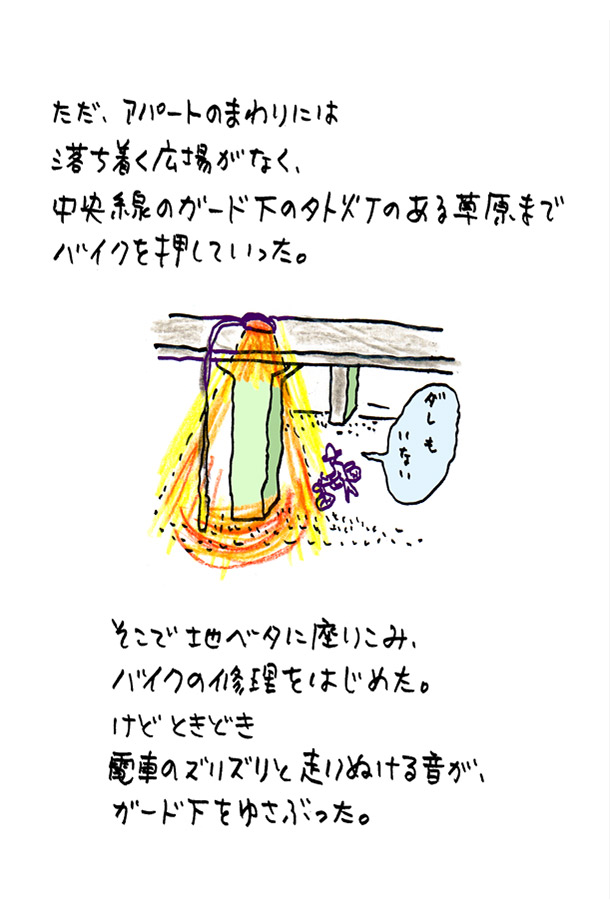 ただ、アパートのまわりには
落ち着く広場がなく、
中央線のガード下の外灯のある草原まで
バイクを押していった。
ダレも
いない
そこで地ベタに座りこみ、
バイクの修理をはじめた。
けどときどき
電車のズリズリと走りぬける音が、
ガード下をゆさぶった。